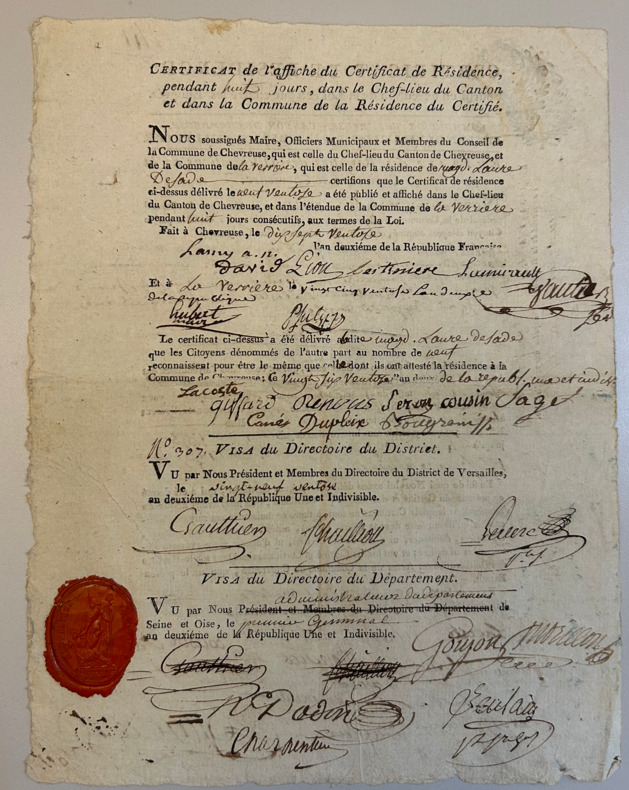 CERTIFICAT de l'affiche du Certificat de Résidence,
pendant huit jours, dans le Chef-lieu du Canton
et dans la Commune de la Résidence du Certifié.
NOUS soussignés Maire, Officiers Municipaux et Membres du Conseil de
la Commune de Chevreuse, qui est celle du Chef-lieu du Canton de Chevreuse, et
de la Commune de la verriere, qui est celle de la résidence de magd. Laure
Desade certifions que le Certificat de résidence
ci-dessus délivré le neuf ventose a été publié et affiché dans le Chef-lieu
du Canton de Chevreuse, et dans l'étendue de la Commune de la verrière
pendant huit jours consécutifs, aux termes de la Loi.
Fait à Chevreuse, le dix sept ventose
l'an deuxième de la République Française
Lamy
David Lion Lamirault
Et à La verrière le vingt cinq ventose Lan deuxieme
de la republique
hubert
maire
Le certificat ci-dessus a été délivré à ladite magd. Laure desade
que les Citoyens dénommés de l'autre part au nombre de neuf
reconnaissent pour être le même que celle dont ils ont attesté la résidence à la
Commune de Chevreuse; le vingt six ventose l'an deux de la republ. une et indivis
Lacoste
giffard Renous Seron cousin Sage
Canés Dupleix
N.º 307. VISA du Directoire du District.
VU par Nous Président et Membres du Directoire du District de Versailles,
le vingt-neuf ventose
an deuxième de la République Une et Indivisible.
Gauthier Chaillou Leclerc
VISA du Directoire du Département.
administrateurs du département
VU par Nous Président et Membres du Directoire du Département de
Seine et Oise, le premier Germinal
an deuxième de la République Une et Indivisible.
Goujon
Gauthier Chaillou
Charpentier